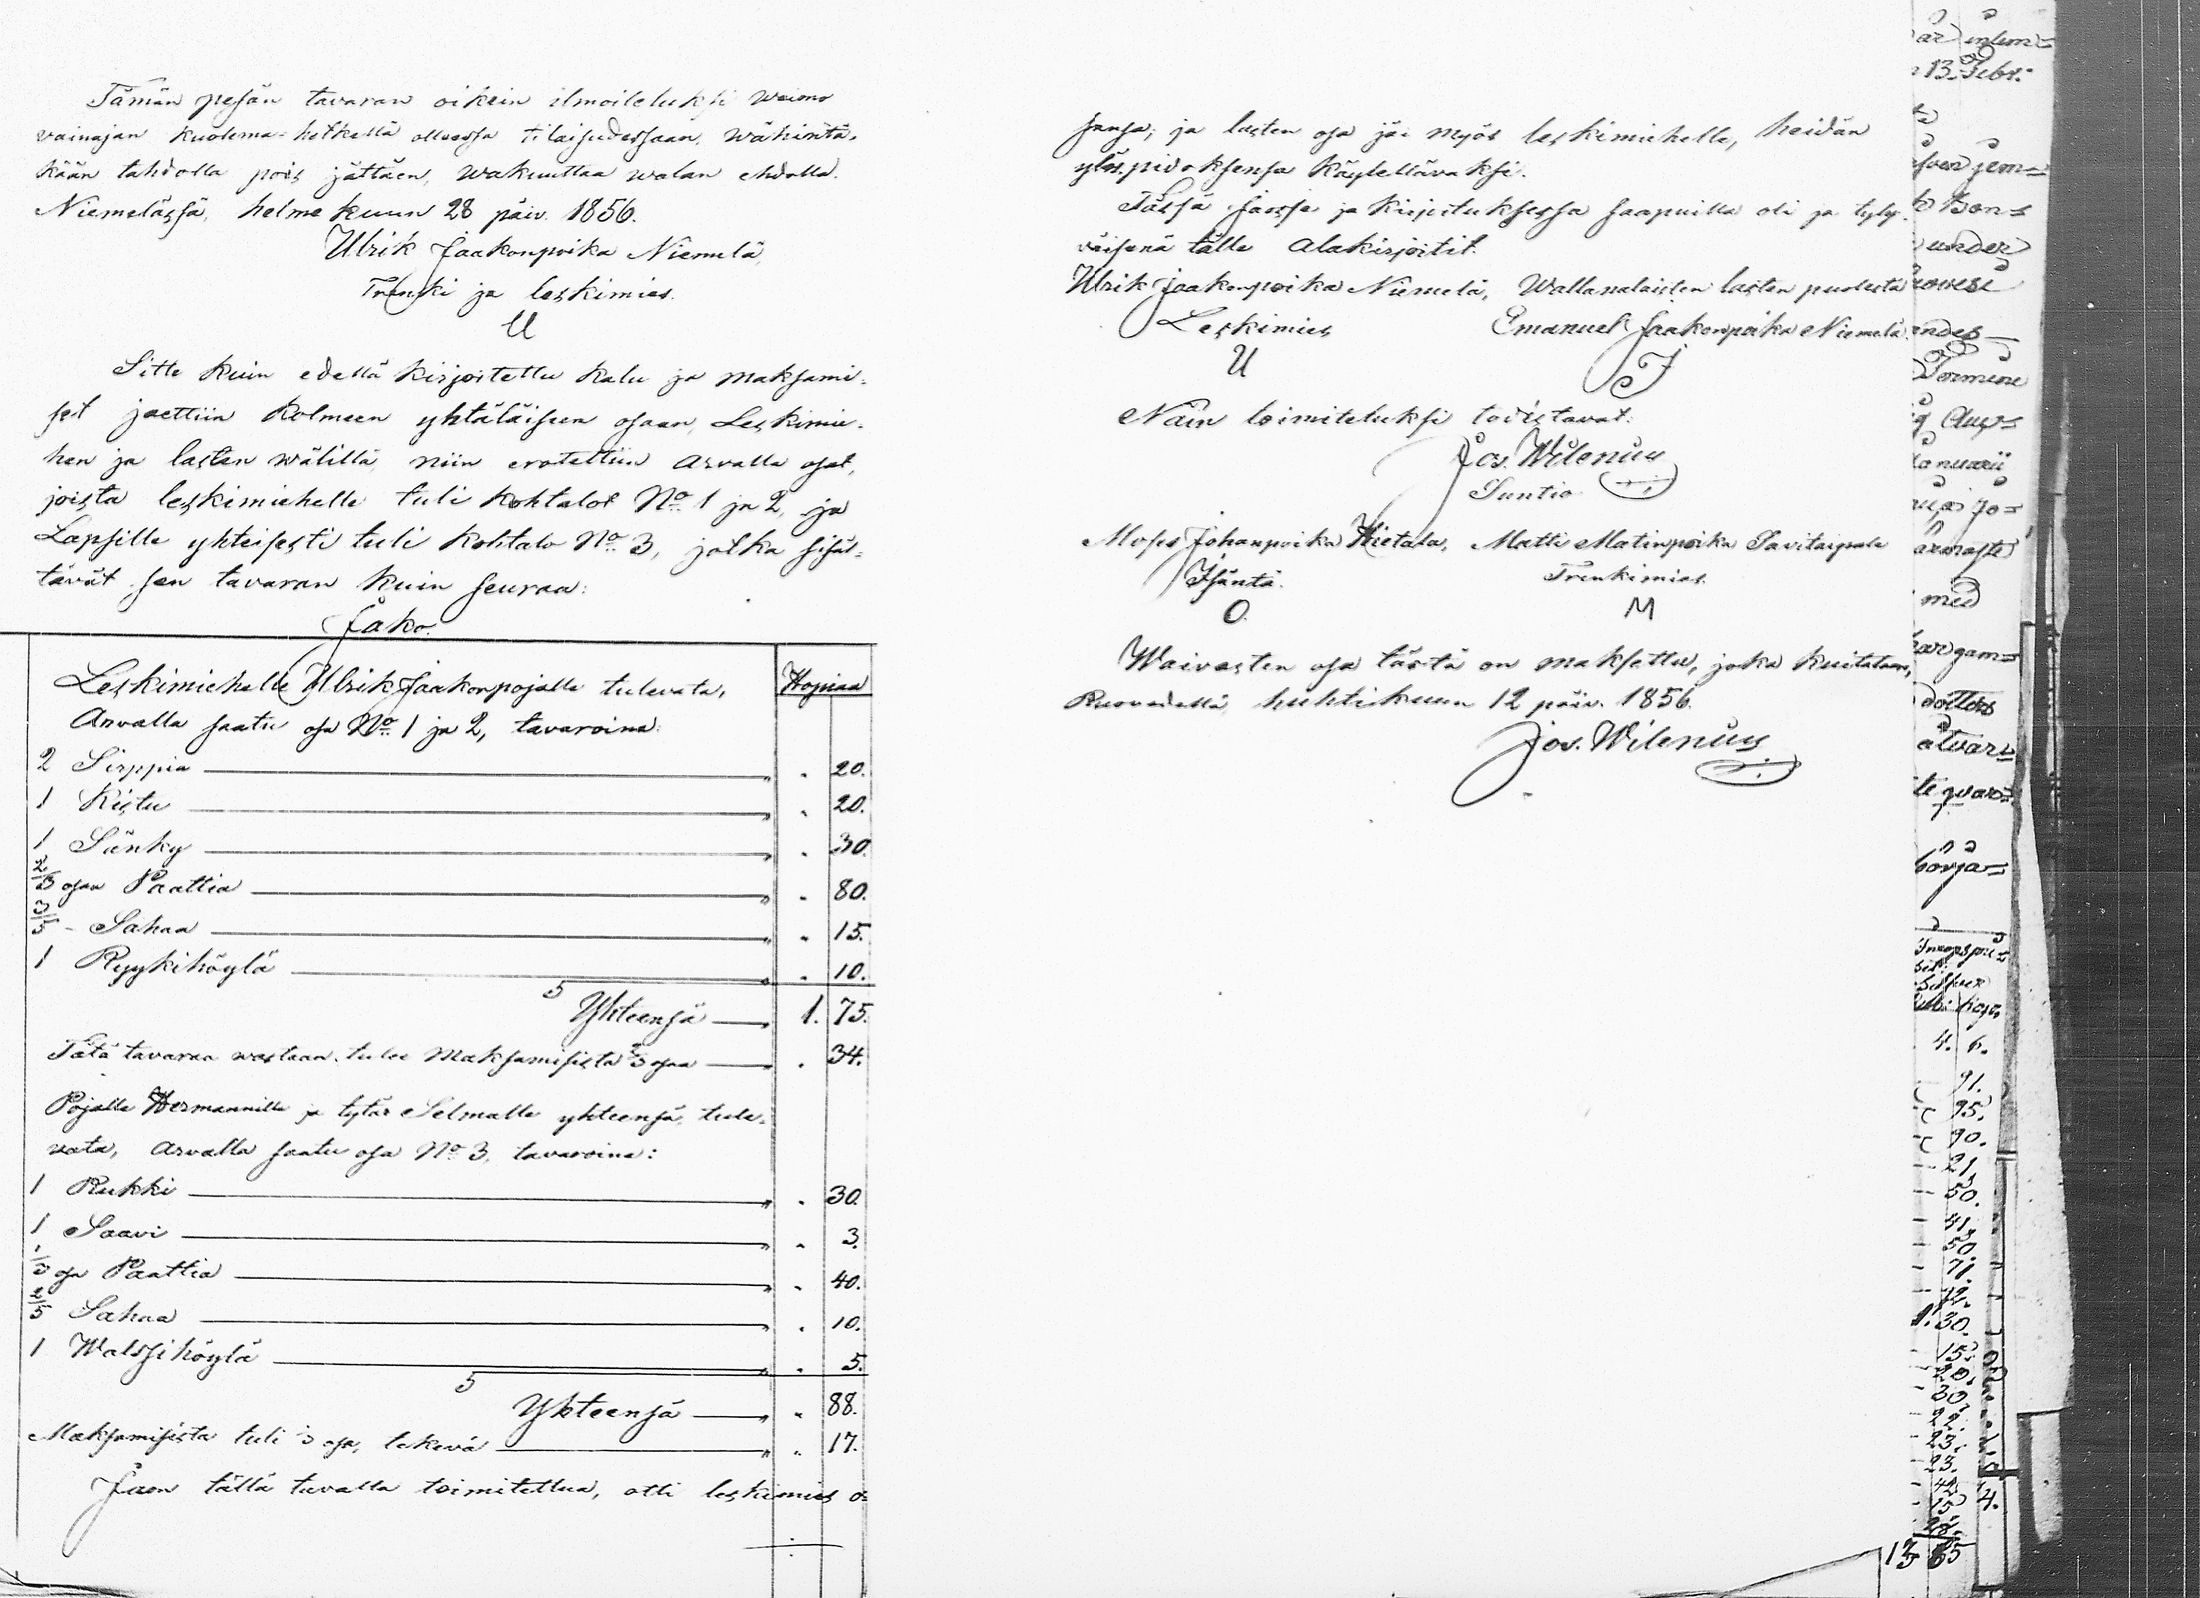 Tämän pesän tavaran oikein ilmoiteluksi waimo
vainajan kuolema-hetkellä ollessa tilaisudessaan, wähintä-
kään tahdolla pois jättäen, wakuuttaa walan ehdolla.
Niemelässä, helmekuun 28 päiv. 1856.
Ulrik Jaakonpoika Niemelä,
Trenki ja leskimies.
U
Sitte kuin edellä kirjoitettu kalu ja maksami-
set jaettiin kolmeen yhtäläiseen osaan, Leskimie-
hen ja lasten wälillä, niin erotettiin arvalla osat,
joista leskimiehelle tuli kohtalot No 1 ja 2, ja
Lapsille yhteisesti tuli kohtalo No 3, jotka sisäl-
tävät sen tavaran kuin seuraa:
Jako.
Leskimiehelle Ulrik Jaakonpojalle tulevata, Hopiaa
Arvalla saatu osa No 1 ja 2, tavaroina:
2 Sirppiä " 20.
1 Kistu " 20.
1 Sänky " 30.
2/3 osaa Paattia " 80.
3/5 - Sahaa " 15.
1 Ryykihöylä " 10.
5 Yhteensä 1. 75.
Tätä tavaraa wastaan tulee Maksamisista 2/3 osaa " 34.
Pojalle Hermannille ja tytär Selmalle yhteensä, tule-
vata, arvalla saatu osa No 3, tavaroina:
1 Rukki " 30.
1 Saavi " 3.
1/3 osa Paattia " 40.
2/5 Sahaa " 10.
1 Walssihöylä " 5.
5 Yhteensä " 88.
Maksamisista tuli 1/3 osa, tekevä " 17.
Jaon tällä tavalla toimitettua, otti leskimies o-
sansa; ja lasten osa jäi myös leskimiehelle, heidän
ylöspidoksensa käytellävaksi.
Tässä jaossa ja kirjituksessa saapuilla oli ja tyty-
väisenä tälle alakirjoitit.
Ulrik Jaakonpoika Niemelä, Wallanalaisten lasten puolesta
Leskimies Emanuel Jaakonpoika Niemelä.
U J
Näin toimiteluksi todistavat:
Jos. Wilenius
Suntio
Moses Johanpoika Hietala, Matti Matinpoika Savitaipale
Isäntä. Trenkimies.
O. M
Waivasten osa tästä on maksettu, joka kuitataan,
Ruovedellä, huhtikuun 12 päiv. 1856.
Jos. Wilenius
13. Febr.
under
med
4. 6.
91.
95.
90.
21.
50.
41.
50.
71.
12.
1. 30.
15.
20.
30.
22.
23.
23.
42.
15
4.